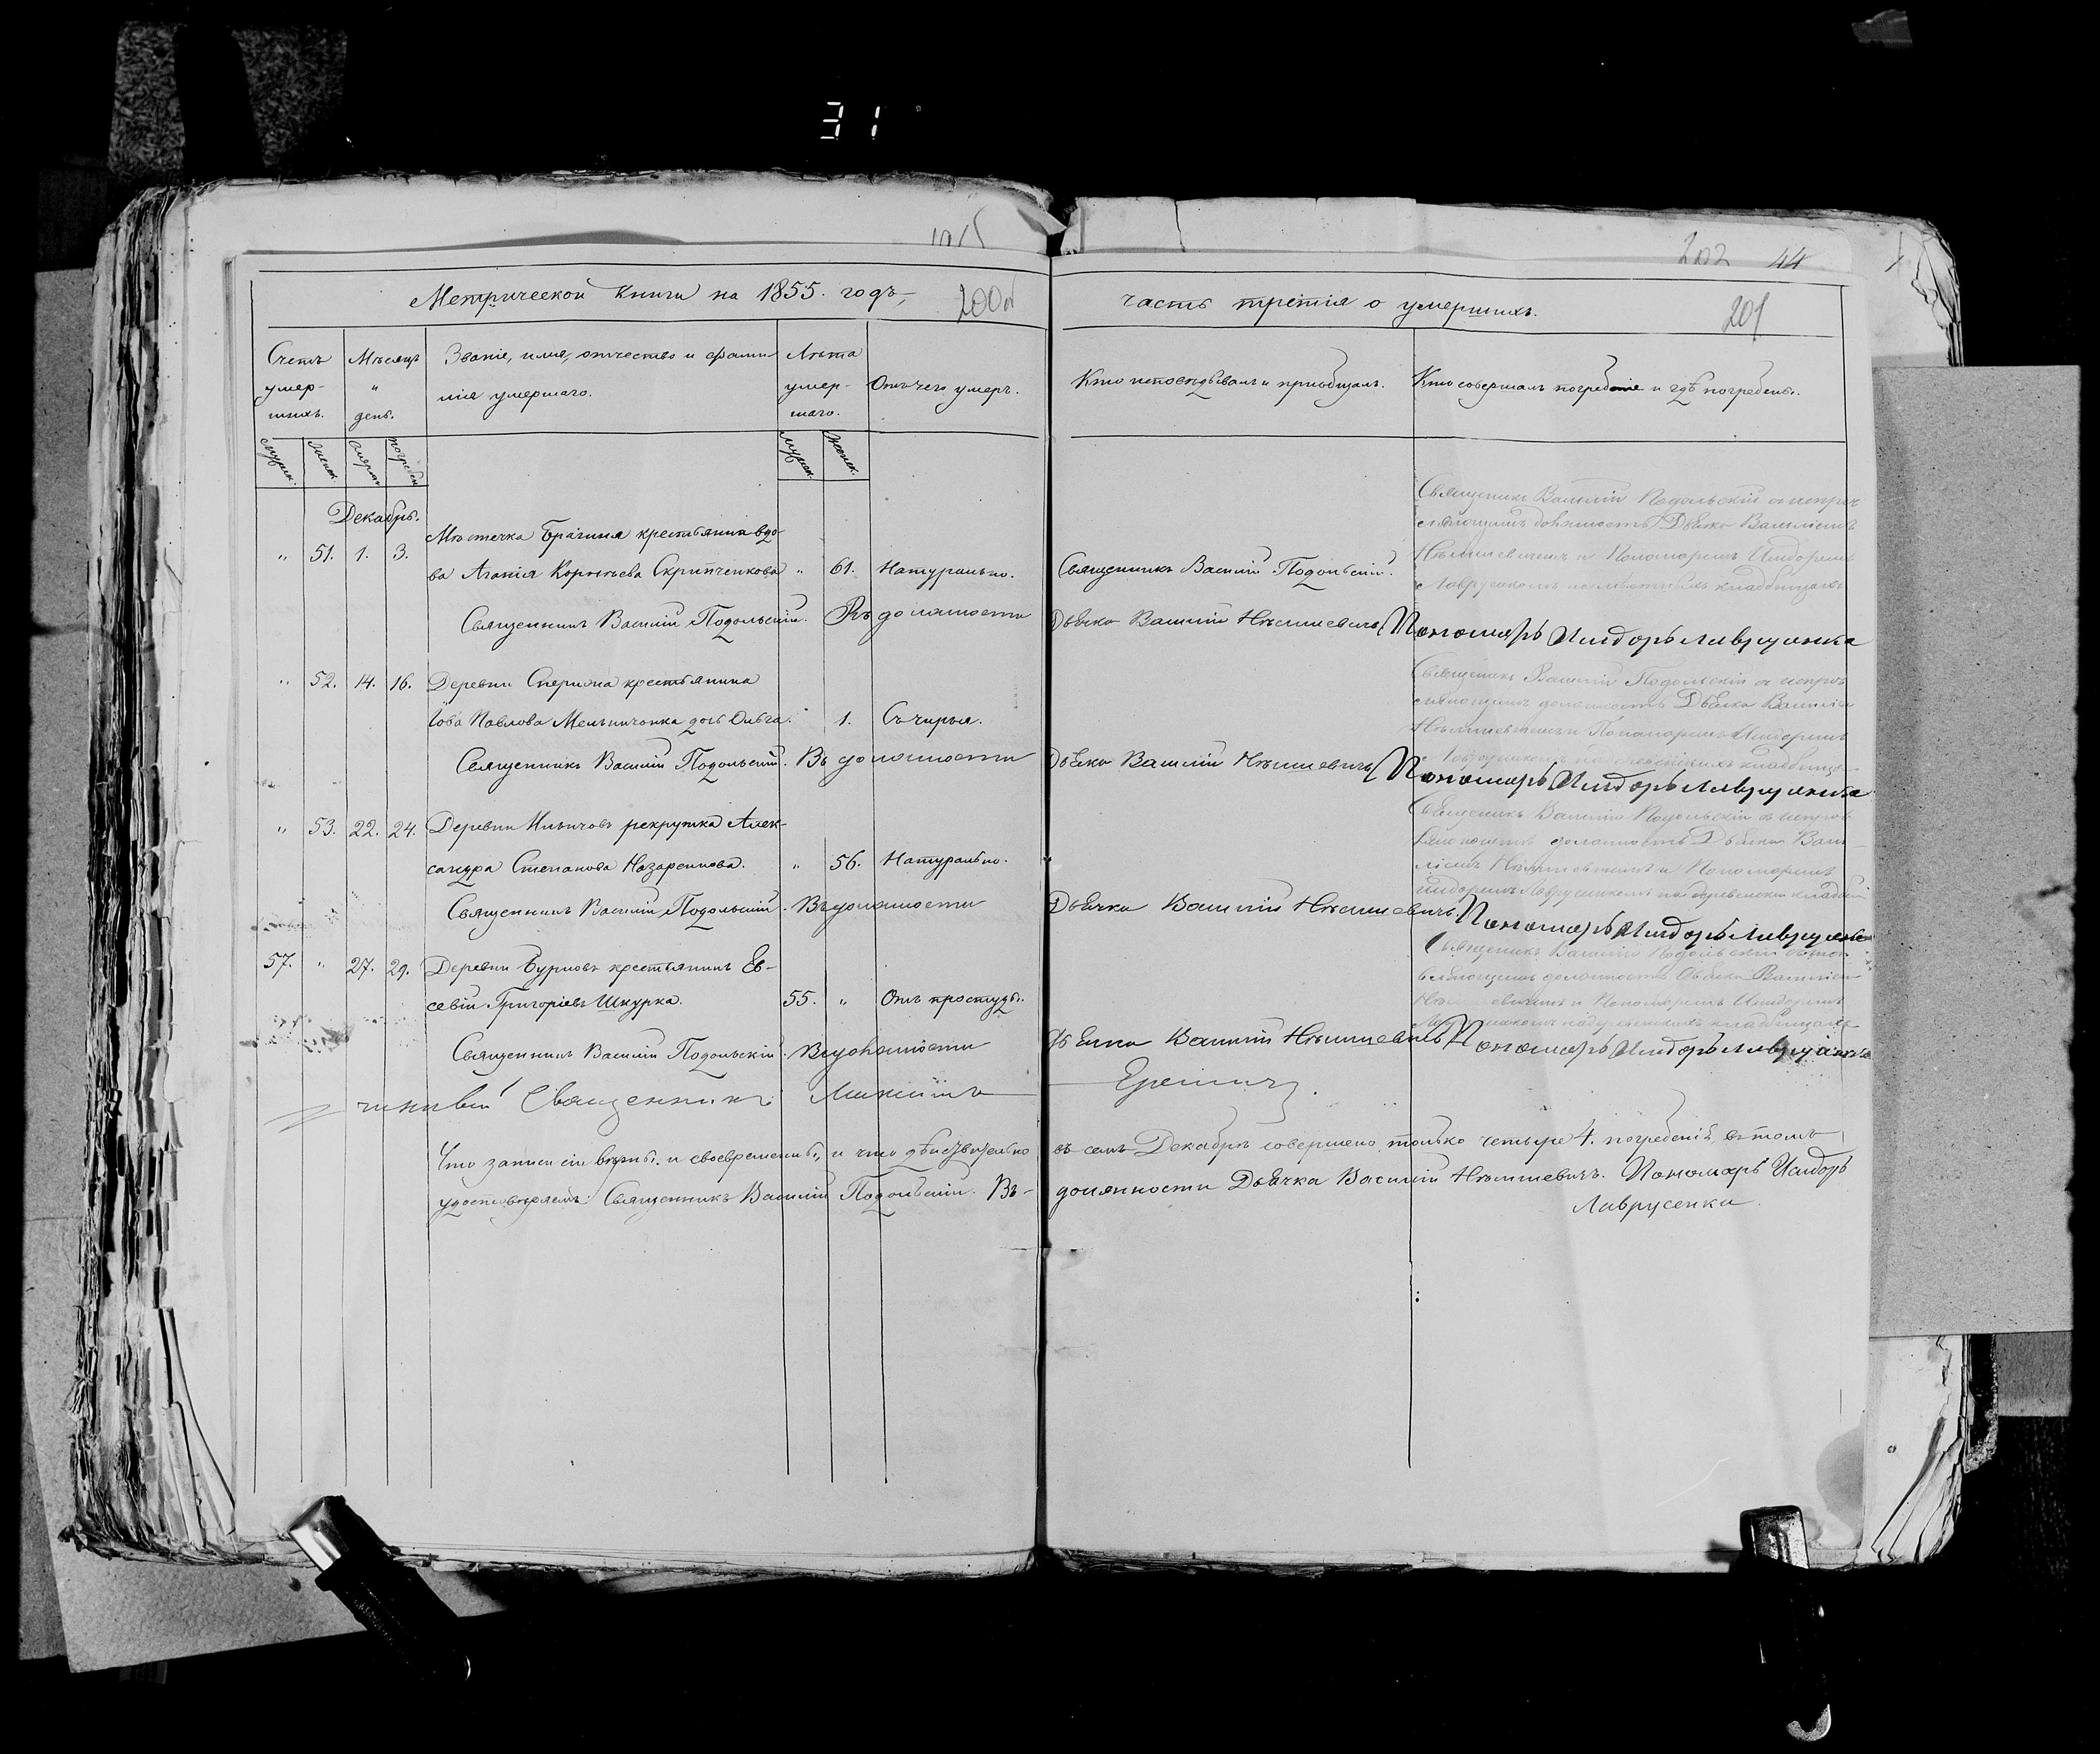 31
202 44
Метрической Книги на 1855. годъ,
200об
часть третія о умершихъ.
201
Счетъ умер- шихъ.
Мѣсяцъ и день.
Званіе, имя, отчество и фами-
лія умершаго.
Лѣта умер- шаго.
Отъ чего умеръ.
Кто исповѣдывалъ и пріобщалъ.
Кто совершалъ погребеніе и гдѣ погребены.
Мужск. Женск. Смерти погребен Мужск. Женск.
Декабрь.
Мѣстечка Брагиня крестьянин вдо-
" 51. 1. 3.
ва Агапія Корнѣева Скрипченкова " 61. Натурально. Священникъ Василій Подольскій.
Священникъ Василій Подольскій
исправ-
ляющимъ должность Дьячка Василіемъ
Нѣмшевичемъ и Пономаремъ Исидоромъ
Лаврусенкомъ кладбищахъ
Священникъ Василій Подольскій. Въ должности Дьячка Василій Нѣмшевичъ Пономарь Исидоръ Лаврусенка
" 52. 14. 16. Деревни крестьянина
Іова Павлова Мельниченка дочь Ольга. 1. Съ чирья.
Священникъ Василій Подольскій
должность Дьячка Василіемъ
Нѣмшевичемъ и Пономаремъ Исидоромъ
Лаврусенкомъ на деревенскихъ кладбищахъ
Священникъ Василій Подольскій. Въ должности Дьячка Василій Нѣмшевичъ Пономарь Исидоръ Лаврусенка
" 53. 22. 24. Деревни Ильичовъ рекрутка Алек-
сандра Степанова Назаренкова. " 56. Натурально.
Священникъ Василій Подольскій
должность Дьячка Васи-
ліемъ Нѣмшевичемъ и Пономаремъ
Исидоромъ Лаврусенкомъ на деревенскихъ кладбищ
Священникъ Василій Подольскій. Въ должности Дьячка Василій Нѣмшевичъ. Пономарь Исидоръ Лаврусенка
57. " 27. 29. Деревни Бурковъ крестьянинъ Ев-
севій Григоріевъ Шкурка. 55. " Отъ простуды.
Священникъ Василій Подольскій
должность Дьячка Василіемъ
Нѣмшевичемъ и Пономаремъ Исидоромъ
Лаврусенкомъ на деревенскихъ кладбищахъ
Священникъ Василій Подольскій. Въ должности Дьячка Василій Нѣмшевичъ Пономарь Исидоръ Лаврусенка
Священникъ
Что записи сіи вѣрны. и своевременны, и что дѣйствительно въ семъ Декабрѣ совершено только четыре 4. погребеній, въ томъ
удостовѣряемъ: Священникъ Василій Подольскій. Въ- должности Дьячка Василій Нѣмшевичъ. Пономарь Исидоръ
Лаврусенка.